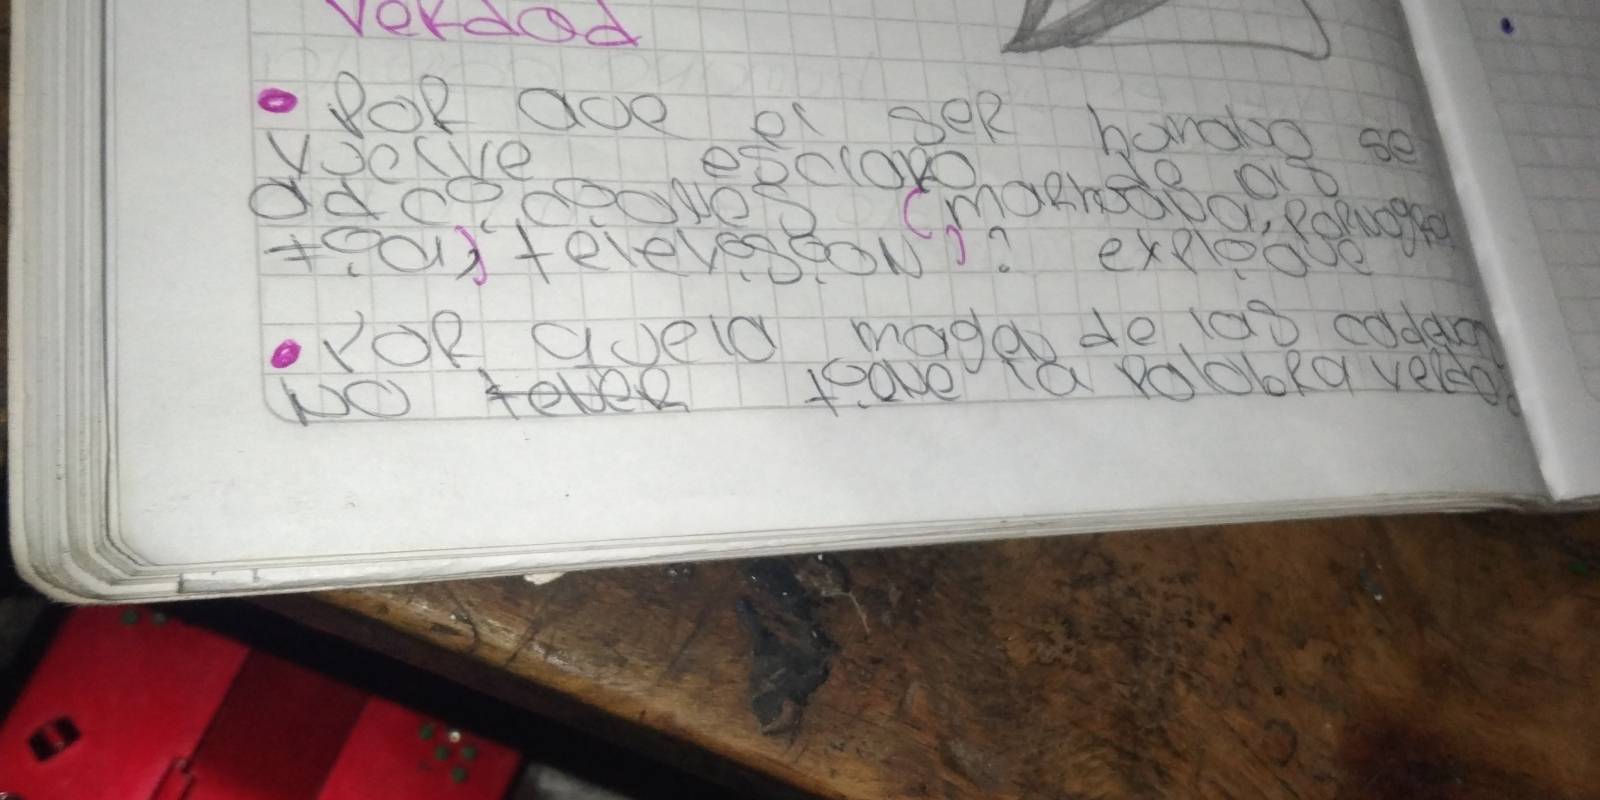 verdad
• POR QUE el SER humano se
vuelve esclavo de as
adicciones (marhuana, Pornogra
fia) television)? explique
• POR quela maga de las caden
NO tener tiene la palabra verda